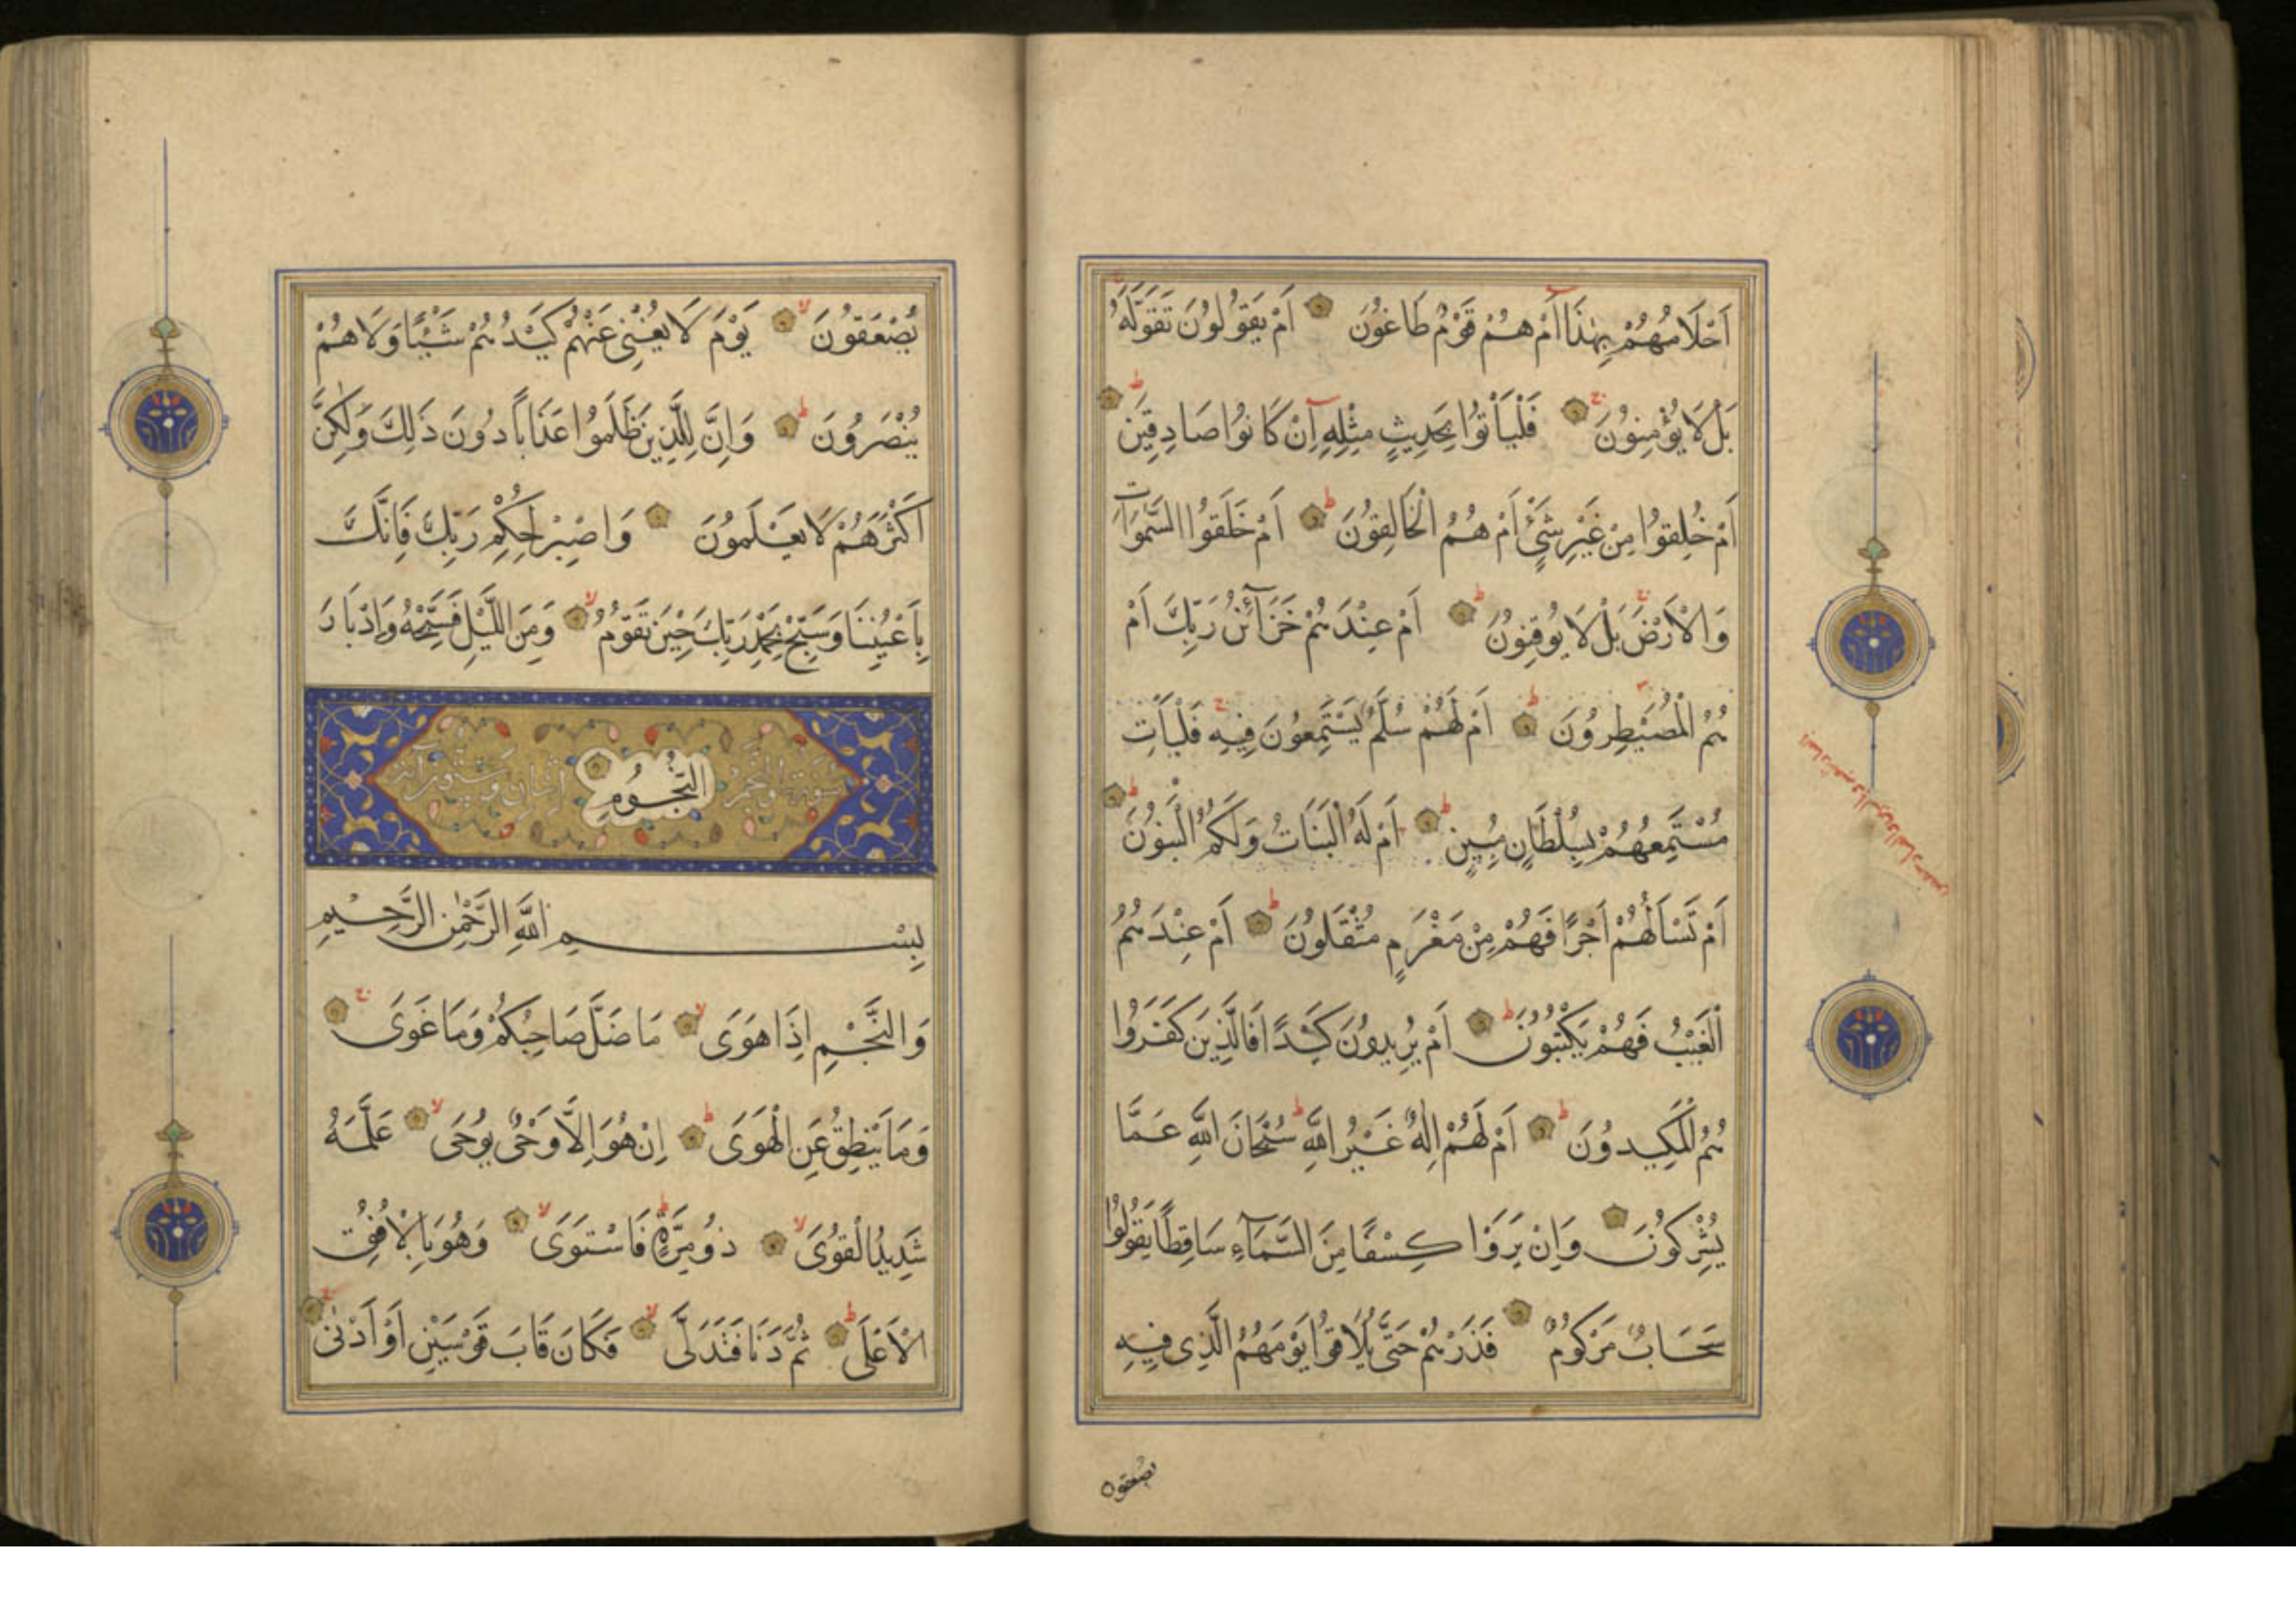 اَحْلَامُهُمْ بِهٰذَا اَمْ هُمْ قَوْمٌ طَاغُونَ اَمْ يَقُولُونَ تَقَوَّلَهُ
بَلْ لَا يُؤْمِنُونَ فَلْيَأْتُوا بِحَدِيثٍ مِثْلِهِ اِنْ كَانُوا صَادِقِينَ
اَمْ خُلِقُوا مِنْ غَيْرِ شَيْءٍ اَمْ هُمُ الْخَالِقُونَ اَمْ خَلَقُوا السَّمَوَاتِ
وَالْاَرْضَ بَلْ لَا يُوقِنُونَ اَمْ عِنْدَهُمْ خَزَآئِنُ رَبِّكَ اَمْ
هُمُ الْمُصَيْطِرُونَ اَمْ لَهُمْ سُلَّمٌ يَسْتَمِعُونَ فِيهِ فَلْيَأْتِ
مُسْتَمِعُهُمْ بِسُلْطَانٍ مُبِينٍ اَمْ لَهُ الْبَنَاتُ وَلَكُمُ الْبَنُونَ
اَمْ تَسْأَلُهُمْ اَجْرًا فَهُمْ مِنْ مَغْرَمٍ مُثْقَلُونَ اَمْ عِنْدَهُمُ
الْغَيْبُ فَهُمْ يَكْتُبُونَ اَمْ يُرِيدُونَ كَيْدًا فَالَّذِينَ كَفَرُوا
هُمُ الْمَكِيدُونَ اَمْ لَهُمْ اِلٰهٌ غَيْرُ اللّٰهِ سُبْحَانَ اللّٰهِ عَمَّا
يُشْرِكُونَ وَاِنْ يَرَوْا كِسْفًا مِنَ السَّمَآءِ سَاقِطًا يَقُولُوا
سَحَابٌ مَرْكُومٌ فَذَرْهُمْ حَتَّى يُلَاقُوا يَوْمَهُمُ الَّذِى فِيهِ
يصعقون
يُصْعَقُونَ يَوْمَ لَا يُغْنِى عَنْهُمْ كَيْدُهُمْ شَيْئًا وَلَا هُمْ
يُنْصَرُونَ وَاِنَّ لِلَّذِينَ ظَلَمُوا عَذَابًا دُونَ ذَلِكَ وَلٰكِنَّ
اَكْثَرَهُمْ لَا يَعْلَمُونَ وَاصْبِرْ لِحُكْمِ رَبِّكَ فَاِنَّكَ
بِاَعْيُنِنَا وَسَبِّحْ بِحَمْدِ رَبِّكَ حِينَ تَقُومُ وَمِنَ اللَّيْلِ فَسَبِّحْهُ وَاِدْبَارَ
النُّجُومِ
سورة والنجم اثنان وستون آية
بِسْمِ اللّٰهِ الرَّحْمٰنِ الرَّحِيمِ
وَالنَّجْمِ اِذَا هَوَى مَا ضَلَّ صَاحِبُكُمْ وَمَا غَوَى
وَمَا يَنْطِقُ عَنِ الْهَوَى اِنْ هُوَ اِلَّا وَحْىٌ يُوحَى عَلَّمَهُ
شَدِيدُ الْقُوَى ذُو مِرَّةٍ فَاسْتَوَى وَهُوَ بِالْاُفُقِ
الْاَعْلَى ثُمَّ دَنَا فَتَدَلَّى فَكَانَ قَابَ قَوْسَيْنِ اَوْ اَدْنٰى